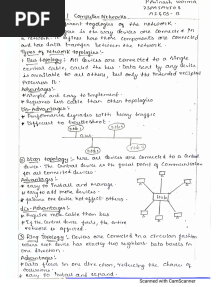 PDF
Computer Networks
different topologies of the network.
is the way devices are connected in
a network. It defines how these components are connected
and how data transfer between the network.
Types of Network topologies:
Bus topology: All devices are connected to a single
central cable, called the bus. Data sent by any device
is available to all others, but only the intended recipient
Advantages:
simple and easy to implement
Requires less cable than other topologies
Dis-Advantages:
Performance degrades with heavy traffic
Difficult to troubleshoot
Star topology: Here all devices are connected to a central
device. The central device is the focal point of communication
for all connected devices.
Advantages:
easy to install and manage
easy to add more devices
failure one device not effect others.
Dis-Advantages:
Require more cable than bus
If the central device fails, the entire
network is affected.
Ring Topology: Devices are connected in a circular fashion
where each device has exactly two neighbors. Data travels in
one direction.
Advantages:
Data flows in one direction, reducing the chance of
collisions
easy to install and expand.
Scanned with CamScanner